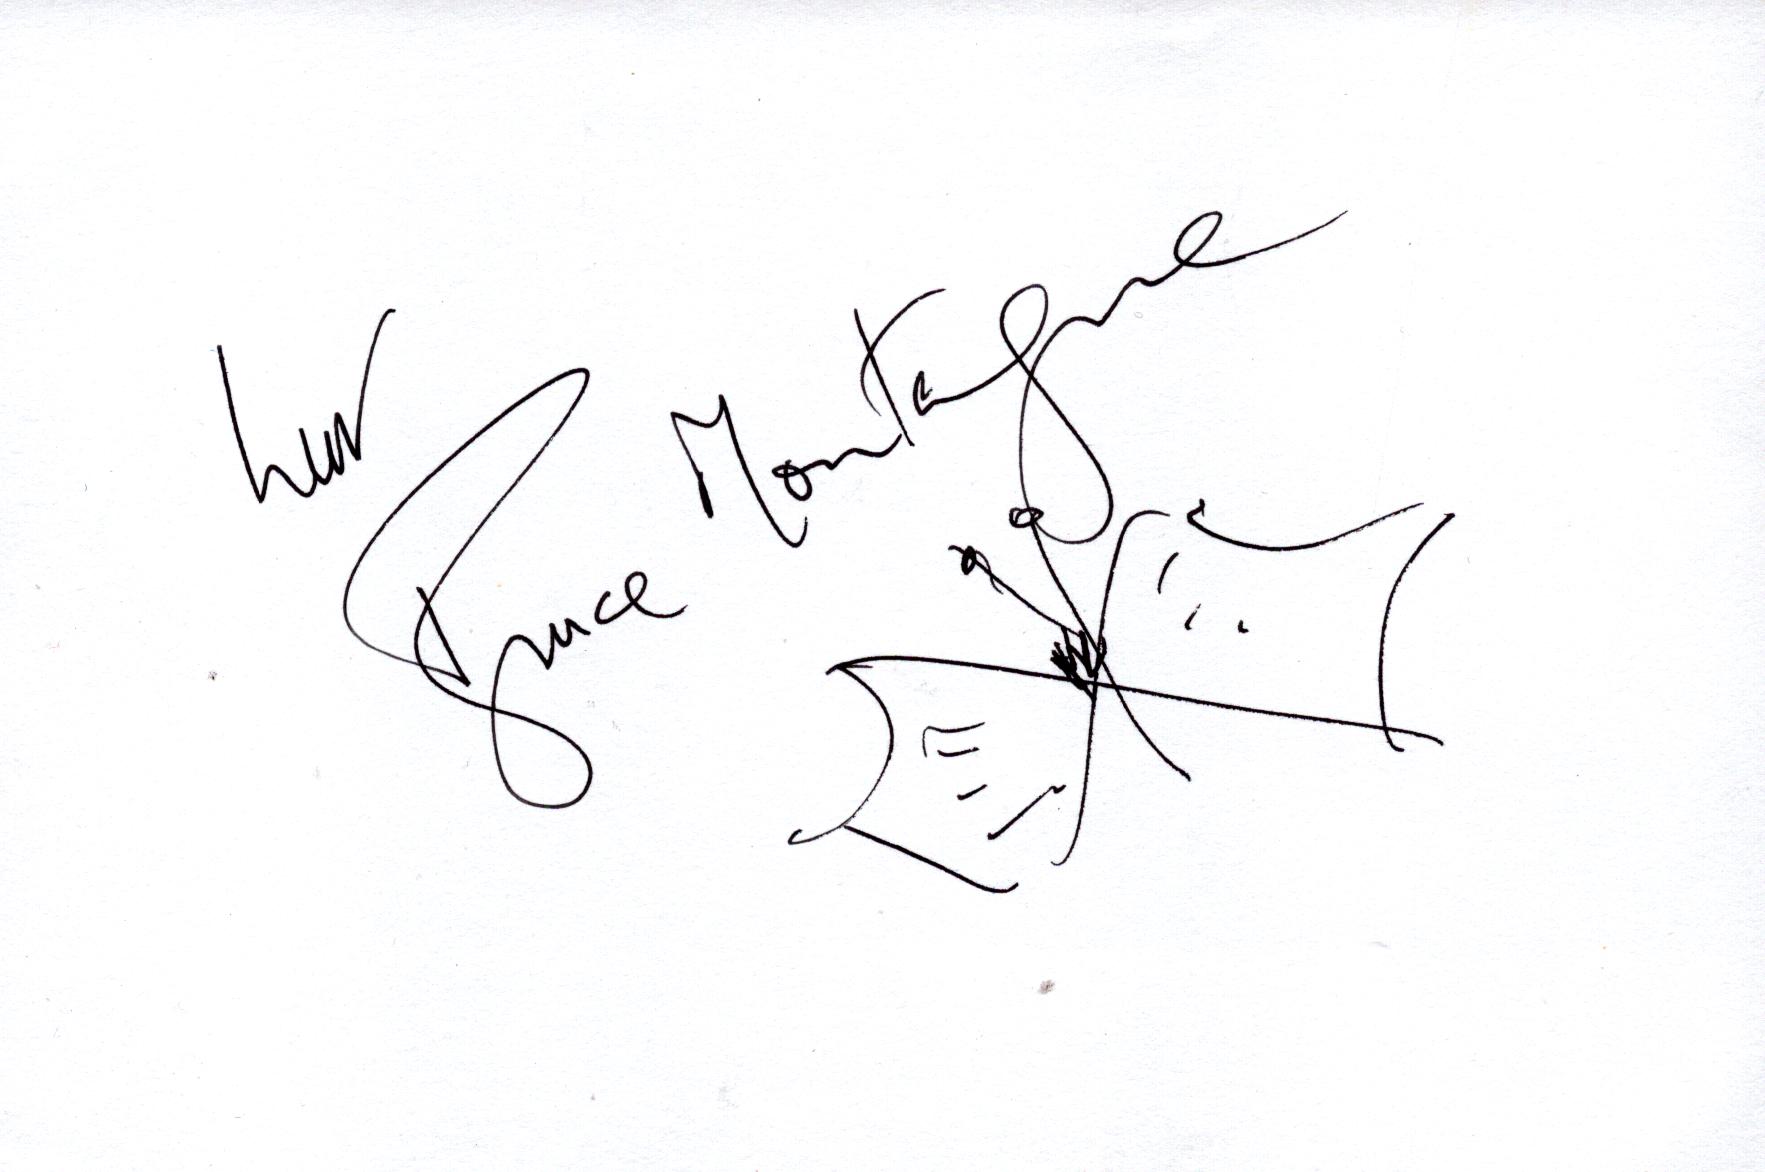 Luv
Bruce Montague